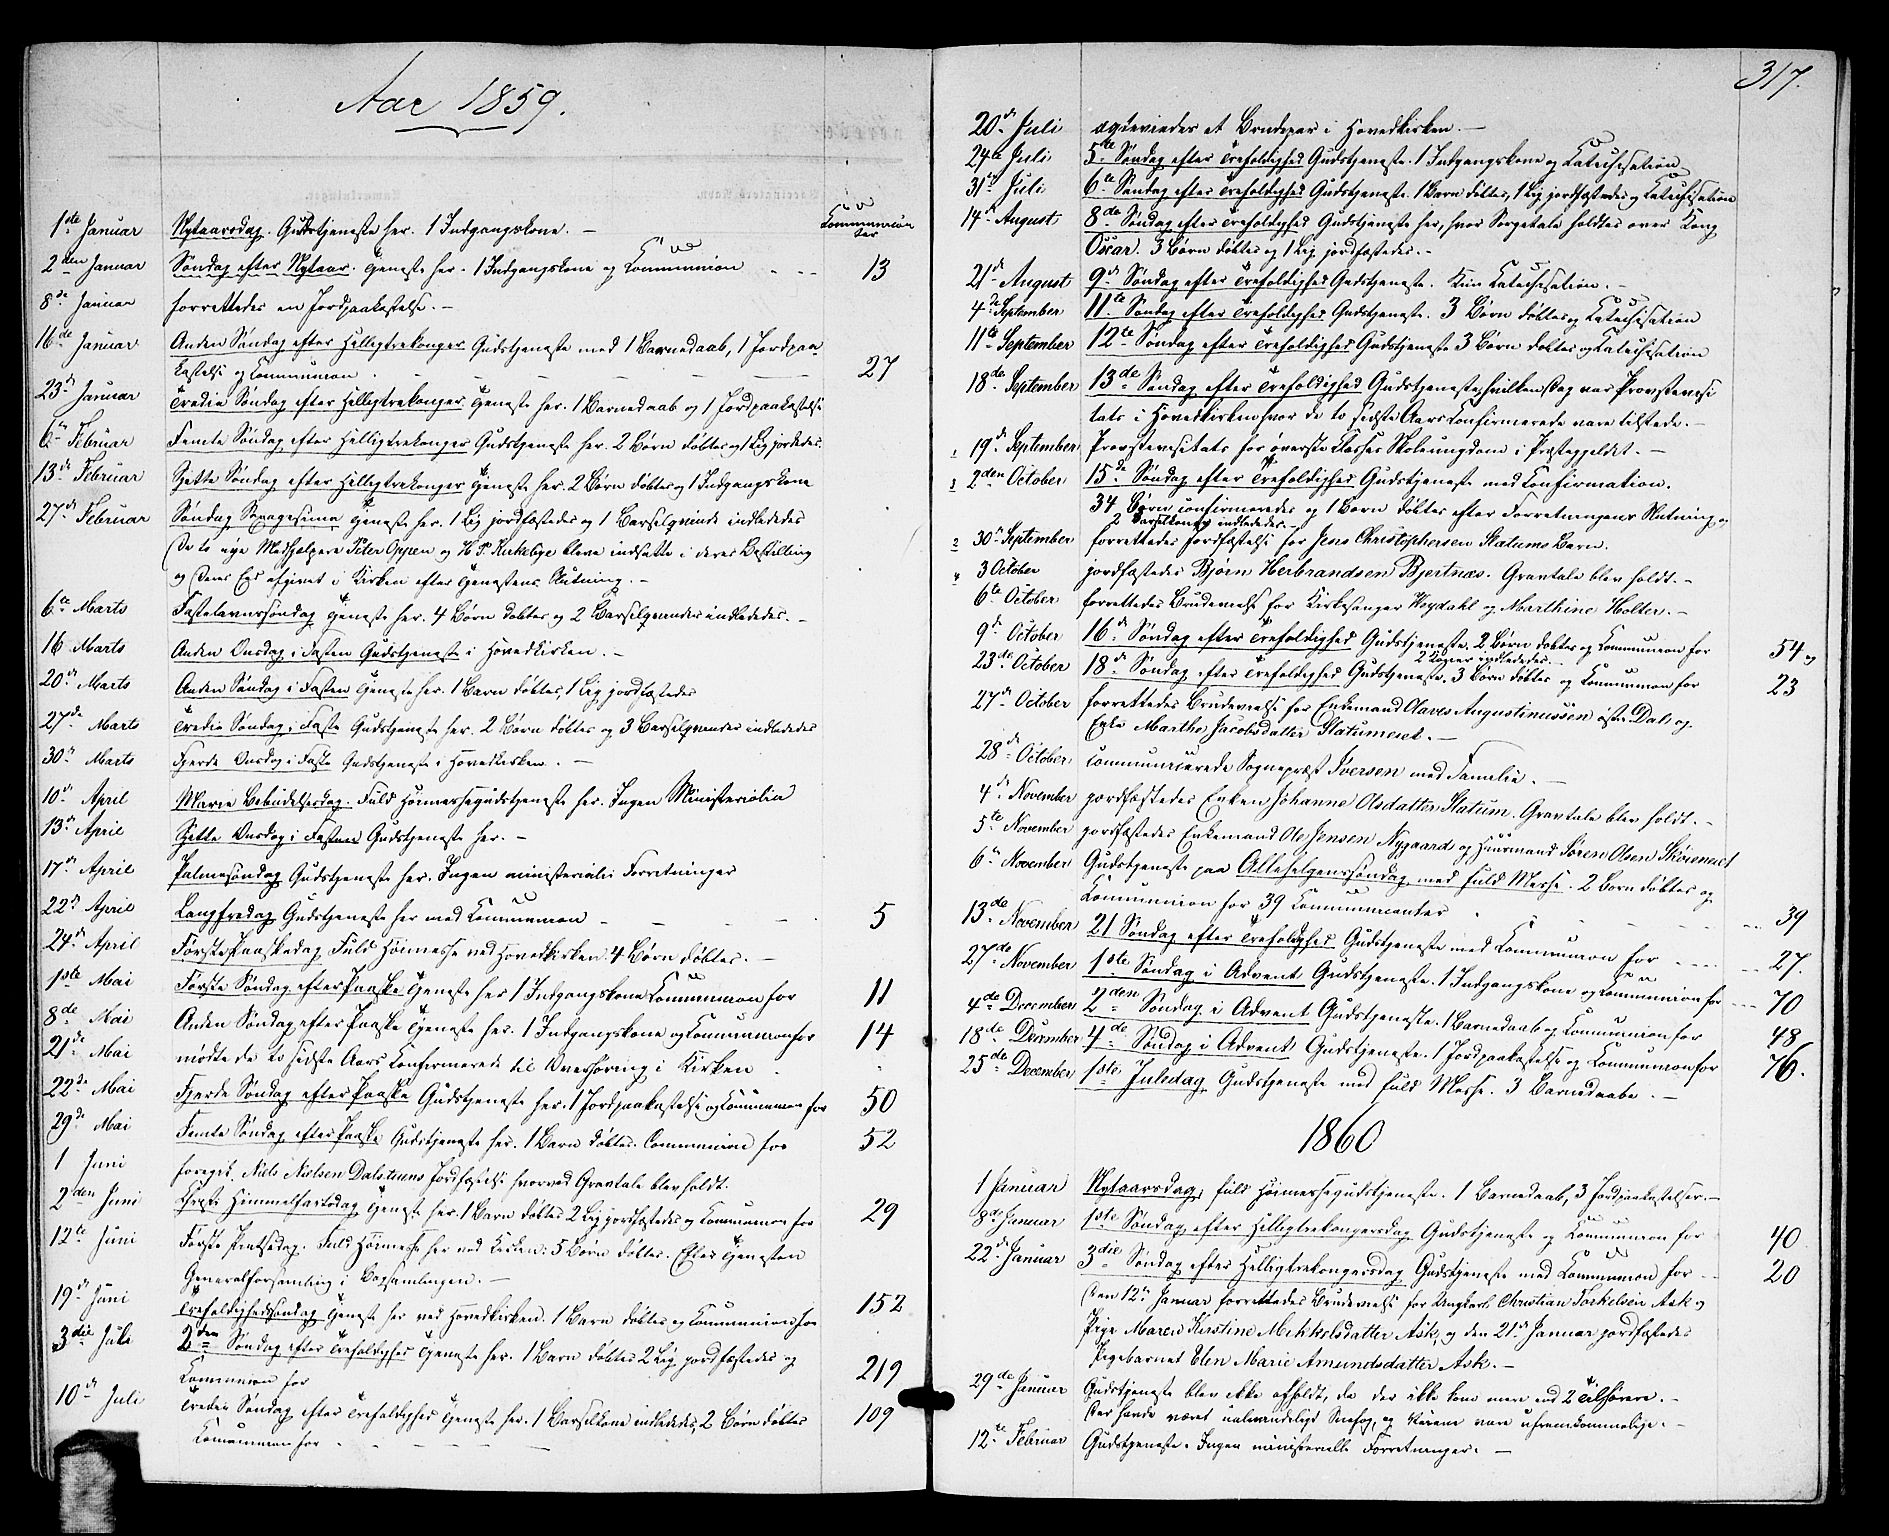 Aar 1859.
Communican
ter
1ste Januar Nytaarsdag. Gudstjeneste her. 1 Indgangskone. –
2den Januar Søndag efter Nytaar. Tjeneste her. 1 Indgangskone og Communion - - - 13
8de Januar forrettedes en Jordpaakastelse. –
16de Januar Anden Søndag efter Helligtrekonger Gudstjeneste med 1 Barnedaab, 1 Jordpaa-
kastelse og Communion. - - - 27
23de Januar Tredie Søndag efter Helligtrekonger Tjeneste her. 1 Barnedaab og 1 Jordpaakastelse
6te Februar Femte Søndag efter Helligtrekonger Gudstjeneste her. 2 Børn døbtes og 1 Lig jordedes.
13de Februar Sjette Søndag efter Helligtrekonger Tjeneste her. 2 Børn døbtes og 1 Indgangskone
27de Februar Søndag Sexagesima Tjeneste her. 1 Lig jordfæstedes og 1 Barselqvinde indledes
De to nye Medhjelpere Peter Oppen og H. P. Kirkebye bleve indsatte i deres Bestilling
og deres Eed afgivet i Kirken efter Tjenestens Slutning. –
6te Marts Fastelavnssøndag Tjeneste her. 4 Børn døbtes og 2 Barselqvinder indlededes. –
16 Marts Anden Onsdag i Fasten Gudstjeneste i Hovedkirken. –
20de Marts Anden Søndag i Fasten Tjeneste her. 1 Barn døbtes, 1 Lig jordfæstedes
27de Marts Tredie Søndag i Faste Gudstjeneste her. 2 Børn døbtes og 3 Barselqvinder indlededes
30te Marts Fjerde Onsdag i Faste Gudstjeneste i Hovedkirken. –
10de April Mariæ Bebudelsesdag. Fuld Høimessegudstjeneste her. Ingen Ministerialia
13de April Sjette Onsdag i Fasten Gudstjeneste her. –
17de April Palmesøndag Gudstjeneste her. Ingen ministerielle Forretninger
22de April Langfredag Gudstjeneste her med Communion - - - 5
24de April Første Paaskedag Fuld Høimesse ved Hovedkirken. 4 Børn døbtes. –
1ste Mai Første Søndag efter Paaske Tjeneste her 1 Indgangskone Communion for 11
8de Mai Anden Søndag efter Paaske Tjeneste her. 1 Indgangskone og Communion for 14
21de Mai mødte de to sidste Aars Confirmerede til Overhøring i Kirken
22de Mai Fjerde Søndag efter Paaske Gudstjeneste her. 1 Jordpaakastelse og Communion for 50
29de Mai Femte Søndag efter Paaske Gudstjeneste her. 1 Barn døbtes. Communion for 52
1 Juni foregik Niels Nielsen Dalstuens Jordfæstelse hvorved Gravtale blev holdt.
2den Juni Christi Himmelfartsdag Tjeneste her. 1 Barn døbtes 2 Lig jordfæstedes og Communion for 29
12te Juni Første Pintsedag. Fuld Høimesse her ved Kirken. 5 Børn døbtes. Efter Tjenesten
Generalforsamling i Bogsamlingen. –
19de Juni Trefoldighedssøndag Tjeneste her ved Hovedkirken. 1 Barn døbtes og Communion for 152
3die Juli 2den Søndag efter Trefoldighed Tjeneste her. 1 Barn døbtes 2 Lig jordfæstedes og
Communion for 219
10de Juli Tredie Søndag efter Trefoldighed Tjeneste her. 1 Barselkone indlededes, 2 Børn døbtes
Communion for - - - 109
317.
20de Juli egteviedes et Brudepar i Hovedkirken. –
24de Juli 5te Søndag efter Trefoldighed Gudstjeneste. 1 Indgangskone og Catechisation
31te Juli 6te Søndag efter Trefoldighed Gudstjeneste. 1 Barn døbtes, 1 Lig jordfæstedes og Catechisation
14de August 8de Søndag efter Trefoldighed Gudstjeneste her, hvor Sørgetale holdtes over Kong
Oscar. 3 Børn døbtes og 1 Lig jordfæstedes. –
21de August 9de Søndag efter Trefoldighed Gudstjeneste. Kun Catechisation. –
4de September 11te Søndag efter Trefoldighed Gudstjeneste. 3 Børn døbtes og Catechisation
11te September 12te Søndag efter Trefoldighed Gudstjeneste 3 Børn døbtes og Catechisation
18de September 13de Søndag efter Trefoldighed Gudstjeneste, hvilken Dag var Provstevisi
tats i Hovedkirken hvor de to sidste Aars Confirmerede vare tilstede. –
1 19de September Provstevisitats for øverste Classes Skoleungdom i Præstegjeldet. –
3 2den October 15de Søndag efter Trefoldighed Gudstjeneste med Confirmation.
34 Børn confirmeredes og 1 Barn døbtes efter Forretningens Slutning og
2 Barselkoner indlededes. –
2 30te September forrettedes Jordfæstelse for Jens Christophersen Slatums Barn.
4 3 October jordfæstedes Bjørn Herbrandsen Bjertnæs. Gravtale blev holdt. –
6te October forrettedes Brudevielse for Kirkesanger Heydahl og Marthine Holter. –
9de October 16de Søndag efter Trefoldighed Gudstjeneste. 2 Børn døbtes og Communion for 54
2 Koner indlededes. –
23de October 18de Søndag efter Trefoldighed Gudstjeneste. 3 Børn døbtes og Communion for 23
27de October forrettedes Brudevielse for Enkemand Olaves Augustinussen østre Dal og
Enke Marthe Jacobsdatter Slatumeiet. –
28de October communicerede Sognepræst Iversen med Familie. –
4de November jordfæstedes Enken Johanne Olsdatter Slatum. Gravtale blev holdt. –
5te November jordfæstedes Enkemand Ole Jensen Nygaard og Huusmand Søren Olsen
6te November Gudstjeneste paa Allehelgenssøndag med fuld Messe. 2 Børn døbtes og
Communion for 39 Communicanter - - - 39
13de November 21 Søndag efter Trefoldighed Gudstjeneste med Communion for - - - 27.
27de November 1ste Søndag i Advent Gudstjeneste. 1 Indgangskone og Communion for - - - 70
4de December 2den Søndag i Advent Gudstjeneste. 1 Barnedaab og Communion for 48
18de December 4de Søndag i Advent Gudstjeneste. 1 Jordpaakastelse og Communion for 76.
25de December 1ste Juledag Gudstjeneste med fuld Messe. 3 Barnedaabe. –
1860
1 Januar Nytaarsdag, fuld Høimessegudstjeneste. 1 Barnedaab, 3 Jordpaakastelser. –
8de Januar 1ste Søndag efter Helligtrekongersdag Gudstjeneste og Communion for 40
22de Januar 3die Søndag efter Helligtrekongersdag Gudstjeneste med Communion for - - 20
Den 12te Januar forrettedes Brudevielse for Ungkarl Christian Torkelsen Ask og
Pige Maren Kirstine Mikkelsdatter Ask, og den 21de Januar jordfæstedes
Pigebarnet Elen Marie Amundsdatter Ask. –
29de Januar Gudstjeneste blev ikke afholdt, da der ikke kom mere end 2 Tilhørere. –
Der havde været ualmindeligt Snefog, og Veiene vare ufremkommelige. –
12te Februar Gudstjeneste. Ingen ministerielle Forretninger. –